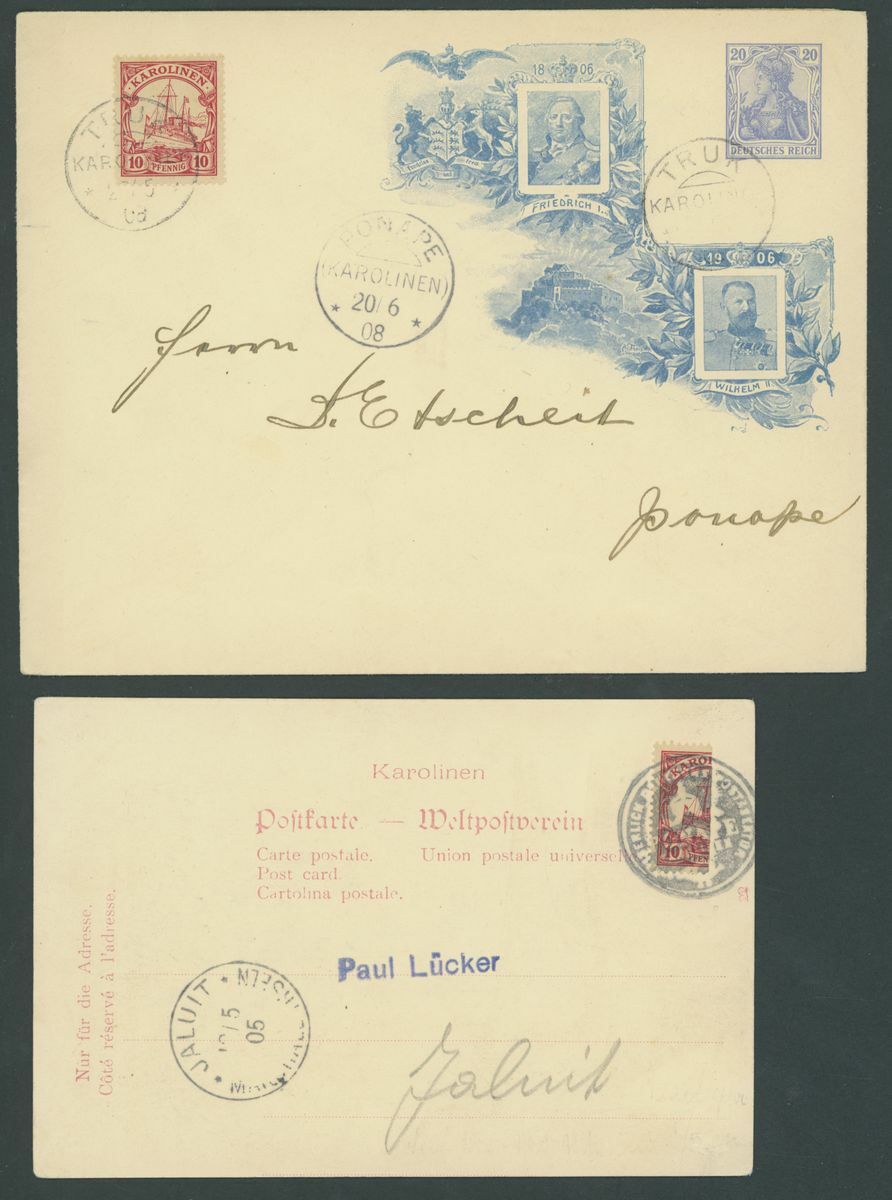 KAROLINEN
10 PFENNIG 10
TRUK
KAROLINEN
08
1806
Furchtlos und treu
FRIEDRICH I.
20 20
DEUTSCHES REICH
TRUK
KAROLIN
1906
WILHELM II
PONAPE
(KAROLINEN)
20/6
08
Herrn
D. Etscheit
Ponape
Karolinen
Postkarte. — Weltpostverein
Carte postale. Union postale universelle
Post card.
Cartolina postale.
KAROL
10
PFEN
Nur für die Adresse.
Côté réservé à l'adresse.
Paul Lücker
JALUIT
/5
05
Jaluit